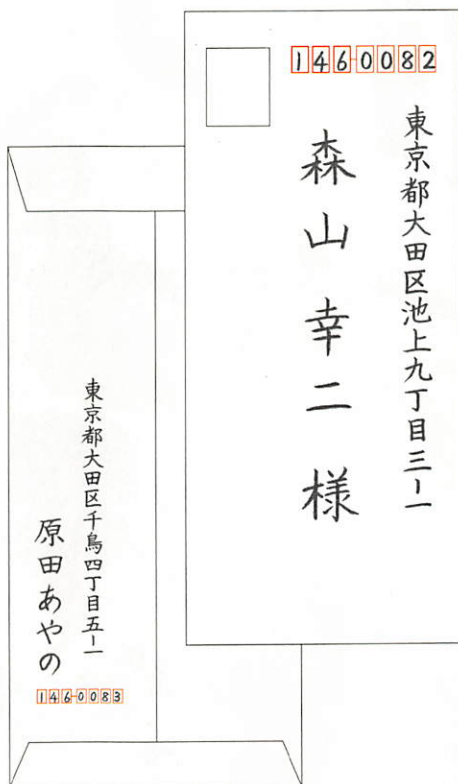 146-0082
東京都大田区池上九丁目三-一
森山幸二様
東京都大田区千鳥四丁目五-一
原田あやの
146-0083